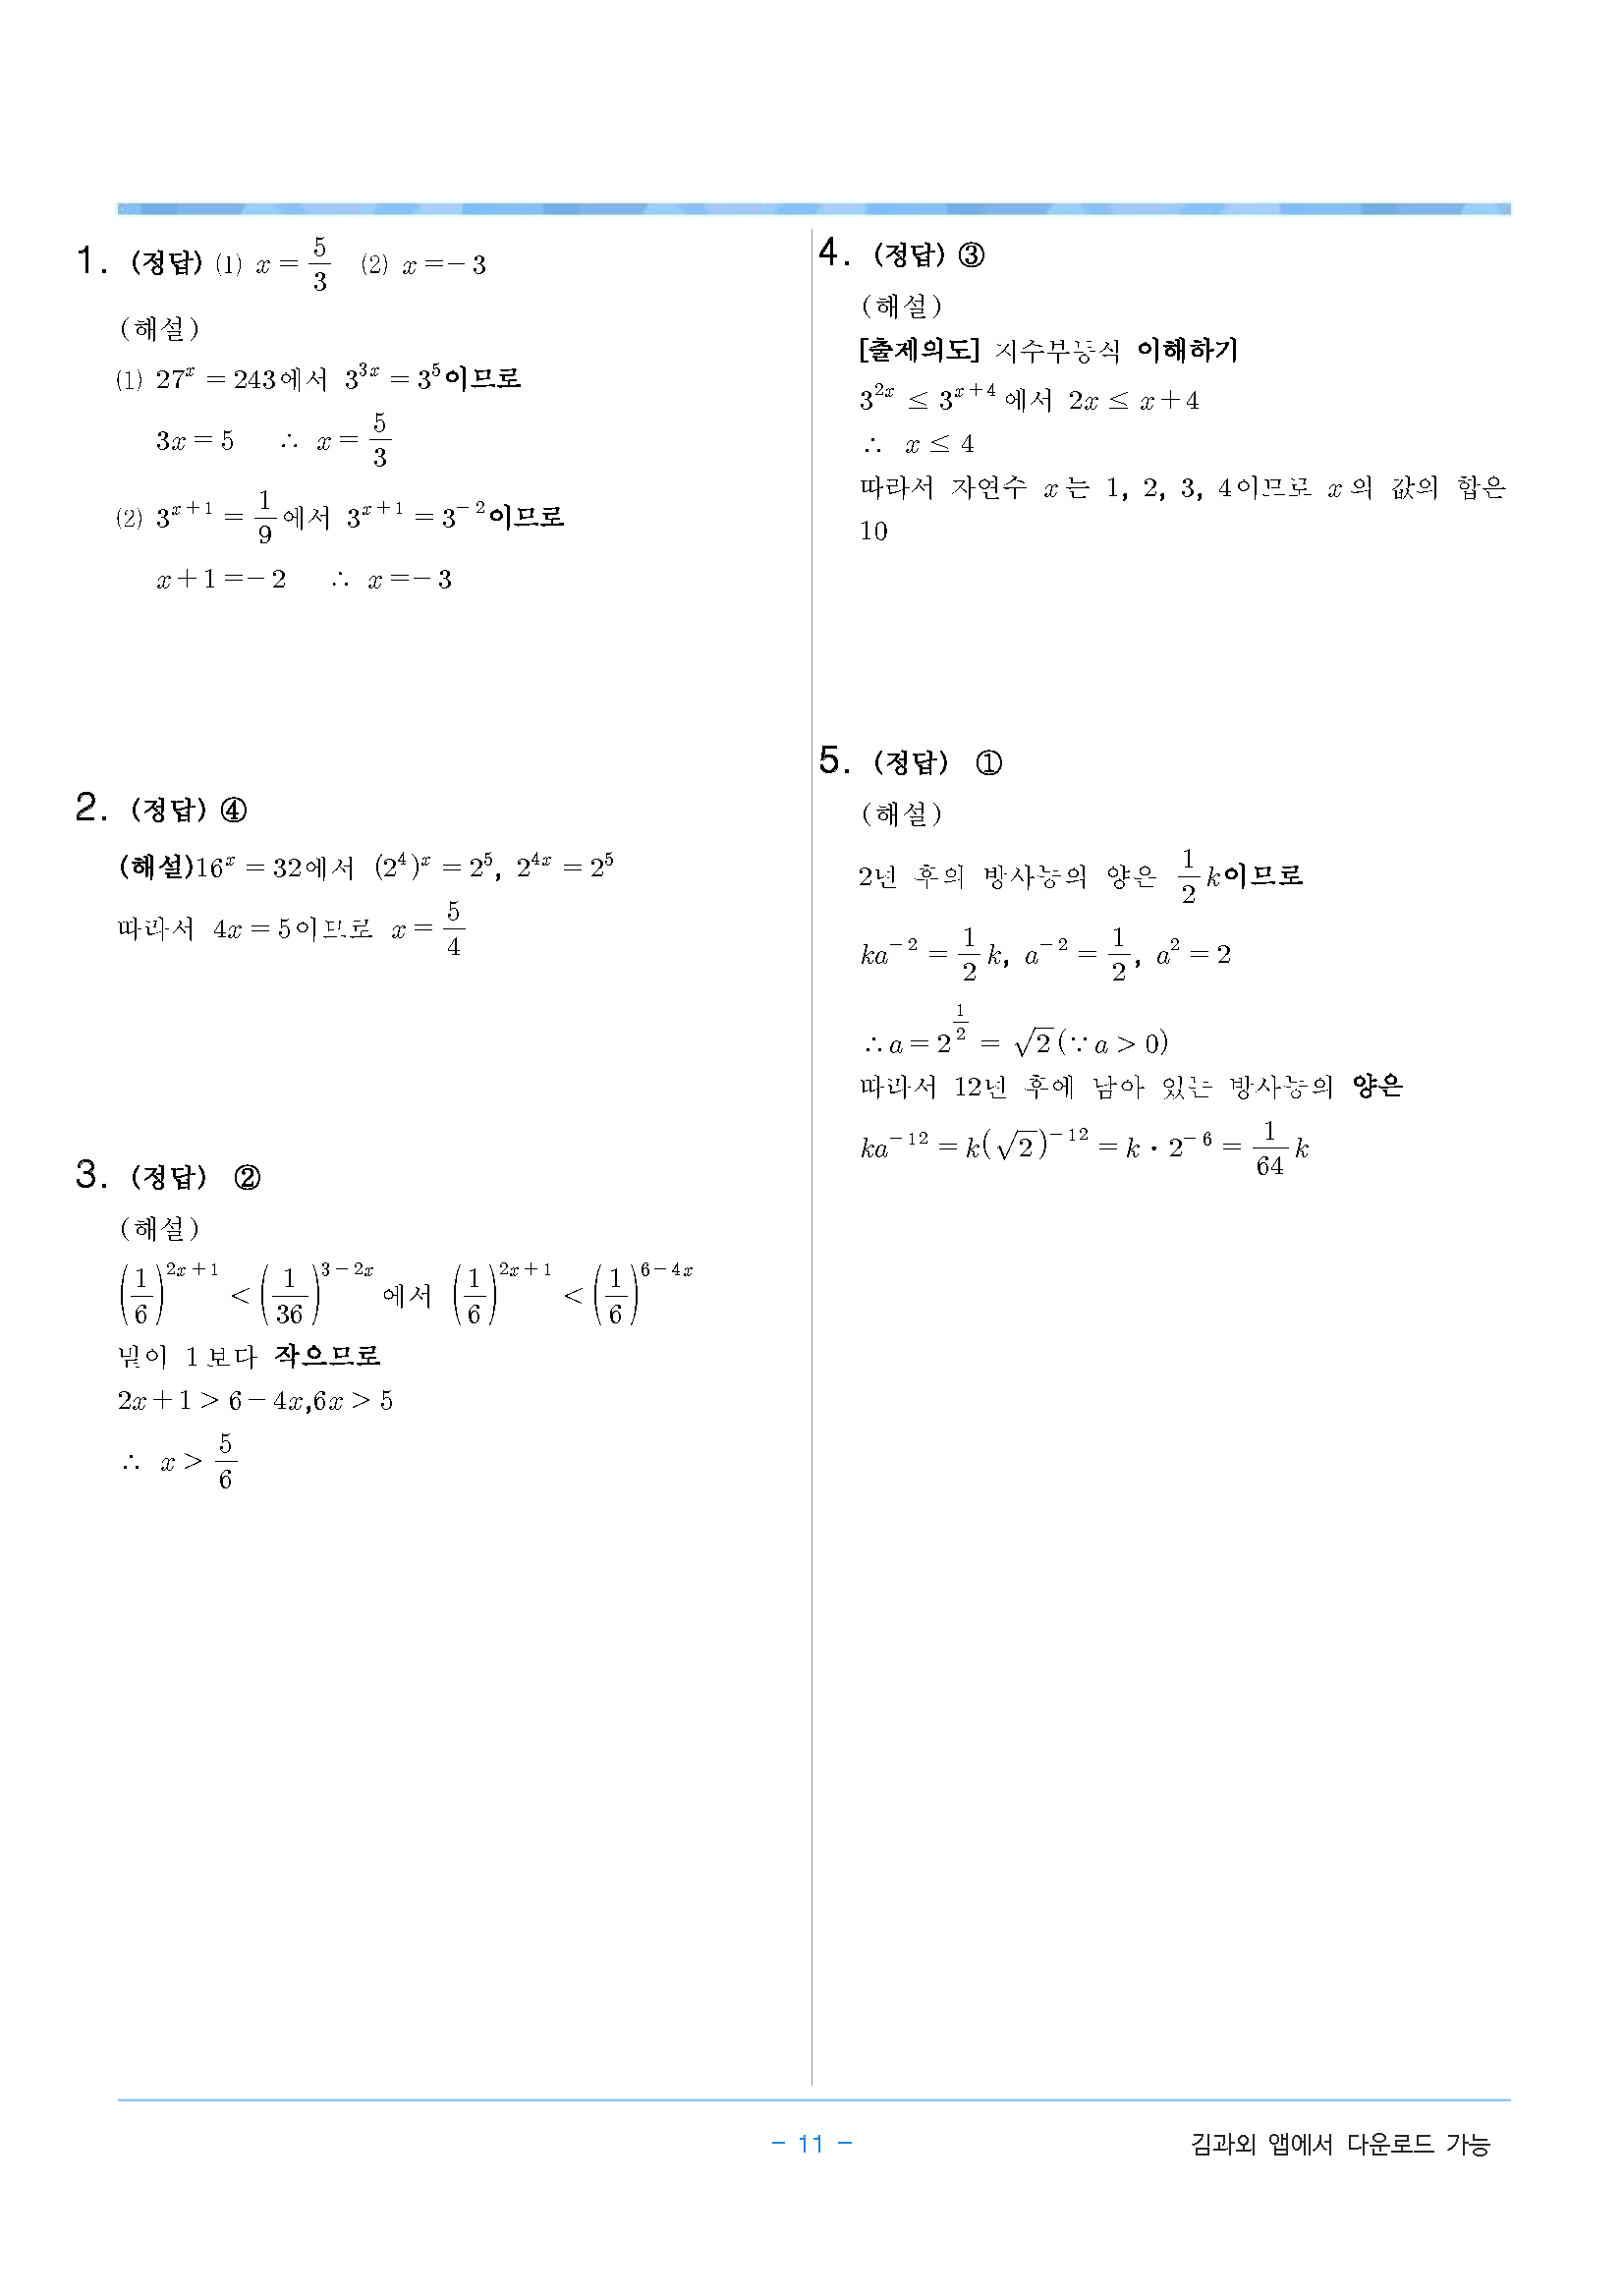 1. (정답) (1) x = 5/3 (2) x = -3
(해설)
(1) 27^x = 243에서 3^{3x} = 3^5이므로
3x = 5 ∴ x = 5/3
(2) 3^{x+1} = 1/9에서 3^{x+1} = 3^{-2}이므로
x + 1 = -2 ∴ x = -3
2. (정답) ④
(해설)16^x = 32에서 (2^4)^x = 2^5, 2^{4x} = 2^5
따라서 4x = 5이므로 x = 5/4
3. (정답) ②
(해설)
(1/6)^{2x+1} < (1/36)^{3-2x} 에서 (1/6)^{2x+1} < (1/6)^{6-4x}
밑이 1보다 작으므로
2x + 1 > 6 - 4x, 6x > 5
∴ x > 5/6
4. (정답) ③
(해설)
[출제의도] 지수부등식 이해하기
3^{2x} ≤ 3^{x+4} 에서 2x ≤ x + 4
∴ x ≤ 4
따라서 자연수 x는 1, 2, 3, 4이므로 x의 값의 합은
10
5. (정답) ①
(해설)
2년 후의 방사능의 양은 1/2 k이므로
ka^{-2} = 1/2 k, a^{-2} = 1/2, a^2 = 2
∴ a = 2^{1/2} = √2 (∵ a > 0)
따라서 12년 후에 남아 있는 방사능의 양은
ka^{-12} = k(√2)^{-12} = k · 2^{-6} = 1/64 k
- 11 -
김과외 앱에서 다운로드 가능